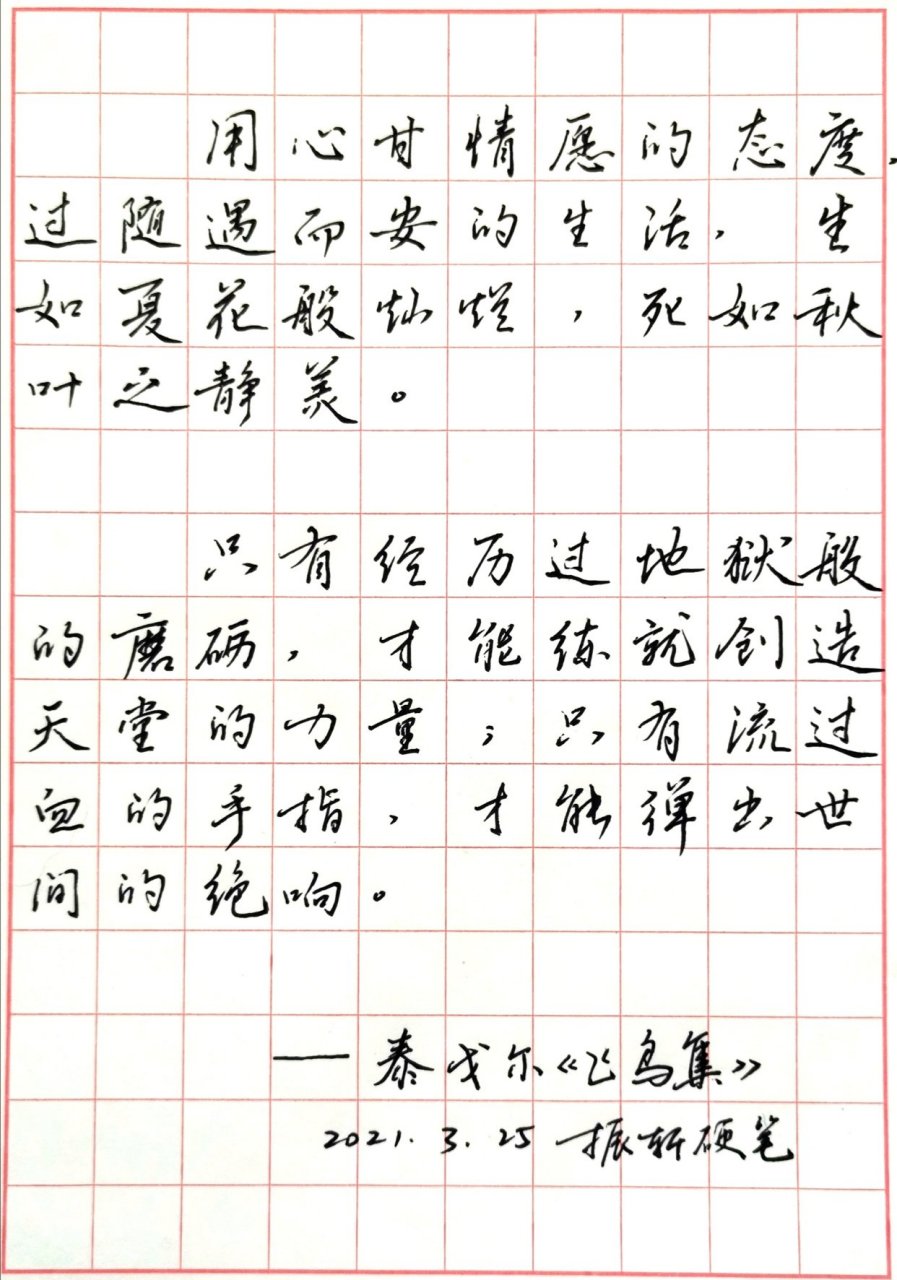 用心甘情愿的态度，
过随遇而安的生活，生
如夏花般灿烂，死如秋
叶之静美。
只有经历过地狱般
的磨砺，才能练就创造
天堂的力量；只有流过
血的手指，才能弹出世
间的绝响。
——泰戈尔《飞鸟集》
2021.3.25 振轩硬笔